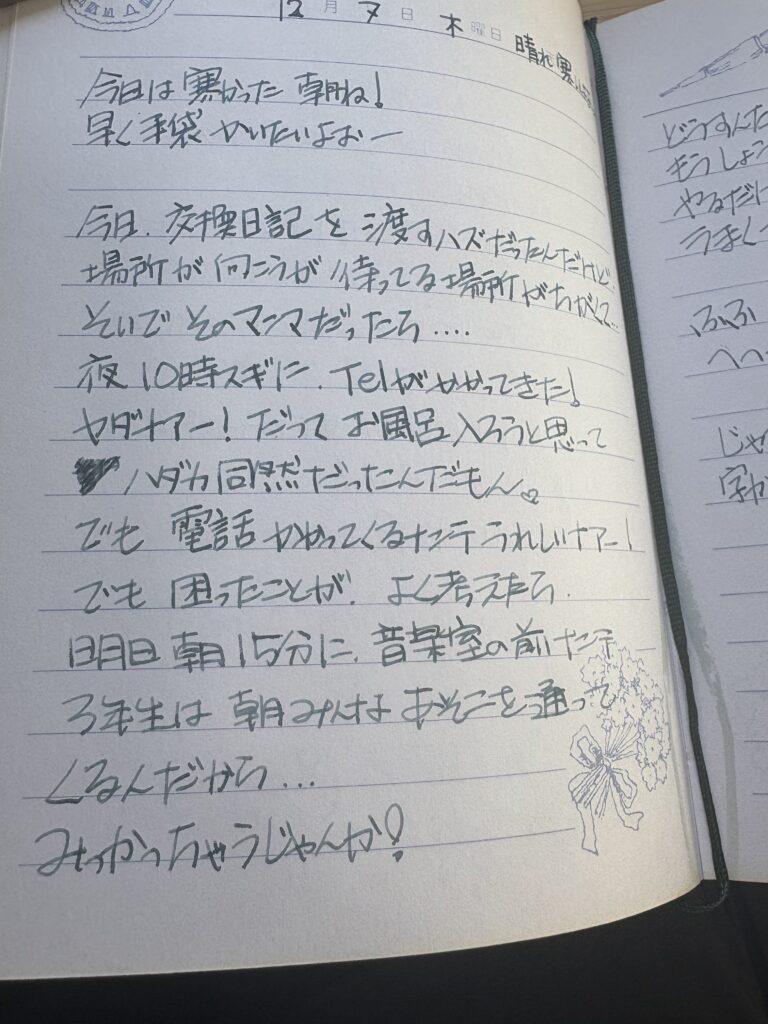 12月7日 木曜日 晴れ 寒い
今日は寒かった 朝ね!
早く手袋かいたいよおー
今日、交換日記を渡すハズだったんだけど、
場所が向こうが待ってる場所がちがくて…
そいで そのマンマだったら‥‥
夜10時スギに、Telがかかってきた!
ヤダナアー! だって お風呂入ろうと思って
ハダカ同然だったんだもん。
でも 電話かかってくるナンテうれしいナアー!
でも 困ったことが、よく考えたら、
明日朝15分に、音楽室の前ナンテ
3年生は 朝みんな あそこを通って
くるんだから…
みつかっちゃうじゃんか!
どうすんた
もうしょう
やるだけ
うまく
ふふ
へへ
じゃ
字か